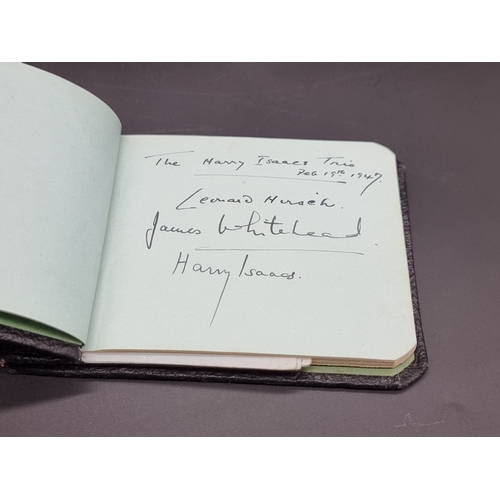 The Harry Isaacs Trio
Feb 19th 1947.
Leonard Hirsch.
James Whitehead
Harry Isaacs.